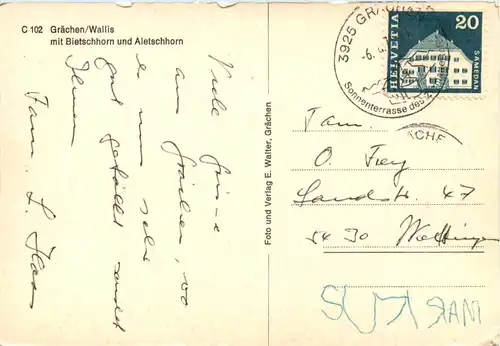 C 102 Grächen/Wallis
mit Bietschhorn und Aletschhorn
Viele Grüsse
aus Grächen, wo
es uns sehr
gut gefällt sendet
Ihnen
Fam. L. Haas
Foto und Verlag E. Walter, Grächen
3925 GRÄCHEN
-6.
Sonnenterrasse des
HELVETIA
20
SAMEDAN
Fam.
O. Frey
Landstr. 47
5430 Wettingen